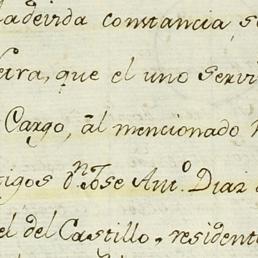 la devida constancia, se
que el uno servi
Cargo, âl mencionado
tigos Dn. Jose Anto. Diaz
el del Castillo, resident